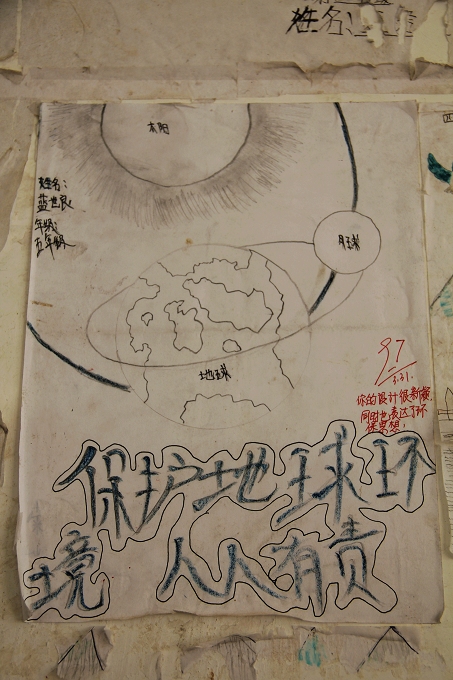 姓名:
太阳
姓名:
蓝世良
年级:
五年级
月球
地球
97
3.31.
你的设计很新颖
同时也表达了环
保思想.
保护地球环
境 人人有责